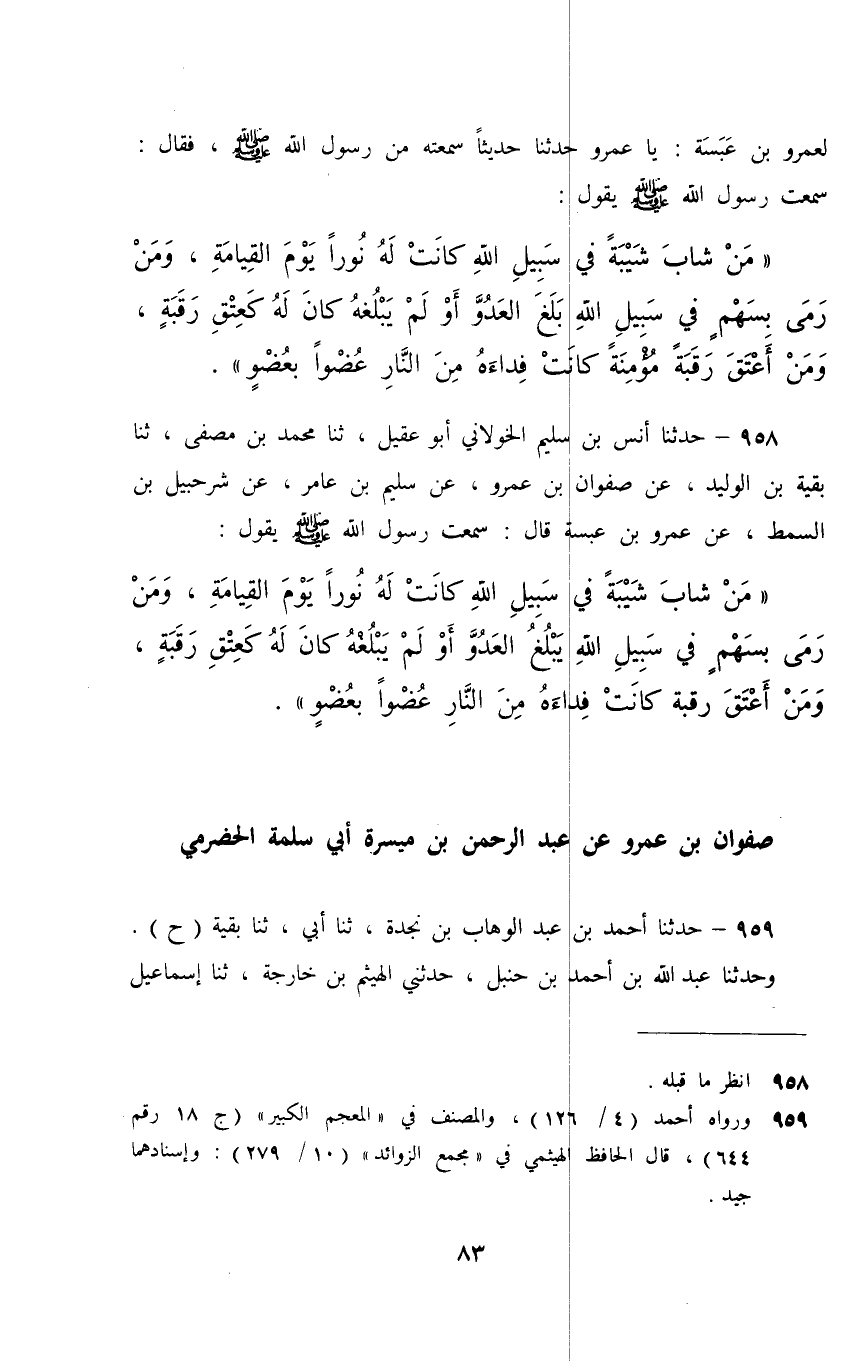 لعمرو بن عَبَسَة : يا عمرو حدثنا حديثاً سمعته من رسول الله ﷺ ، فقال :
سمعت رسول الله ﷺ يقول :
« مَنْ شابَ شَيْبَةً في سَبِيلِ اللهِ كانَتْ لَهُ نُوراً يَوْمَ القِيامَةِ ، وَمَنْ
رَمَى بِسَهْمٍ في سَبِيلِ اللهِ بَلَغَ العَدُوَّ أَوْ لَمْ يَبْلُغهُ كانَ لَهُ كَعِتْقِ رَقَبَةٍ ،
وَمَنْ أَعْتَقَ رَقَبَةً مُؤْمِنَةً كانَتْ فِداءَهُ مِنَ النَّارِ عُضْواً بعُضْوٍ » .
٩٥٨ – حدثنا أنس بن سليم الخولاني أبو عقيل ، ثنا محمد بن مصفى ، ثنا
بقية بن الوليد ، عن صفوان بن عمرو ، عن سليم بن عامر ، عن شرحبيل بن
السمط ، عن عمرو بن عبسة قال : سمعت رسول الله ﷺ يقول :
« مَنْ شابَ شَيْبَةً في سَبِيلِ اللهِ كانَتْ لَهُ نُوراً يَوْمَ القِيامَةِ ، وَمَنْ
رَمَى بسَهْمٍ في سَبِيلِ اللهِ يَبْلُغُ العَدُوَّ أَوْ لَمْ يَبْلُغْهُ كانَ لَهُ كَعِتْقِ رَقَبَةٍ ،
وَمَنْ أَعْتَقَ رقبة كانَتْ فِداءَهُ مِنَ النَّارِ عُضْواً بعُضْوٍ » .
صفوان بن عمرو عن عبد الرحمن بن ميسرة أبي سلمة الحضرمي
٩٥٩ – حدثنا أحمد بن عبد الوهاب بن نجدة ، ثنا أبي ، ثنا بقية ( ح ) .
وحدثنا عبد الله بن أحمد بن حنبل ، حدثني الهيثم بن خارجة ، ثنا إسماعيل
٩٥٨ انظر ما قبله .
٩٥٩ ورواه أحمد ( ٤ / ١٢٦ ) ، والمصنف في « المعجم الكبير » ( ج ١٨ رقم
٦٤٤ ) ، قال الحافظ الهيثمي في « مجمع الزوائد » ( ١٠ / ٢٧٩ ) : وإسنادهما
جيد .
٨٣